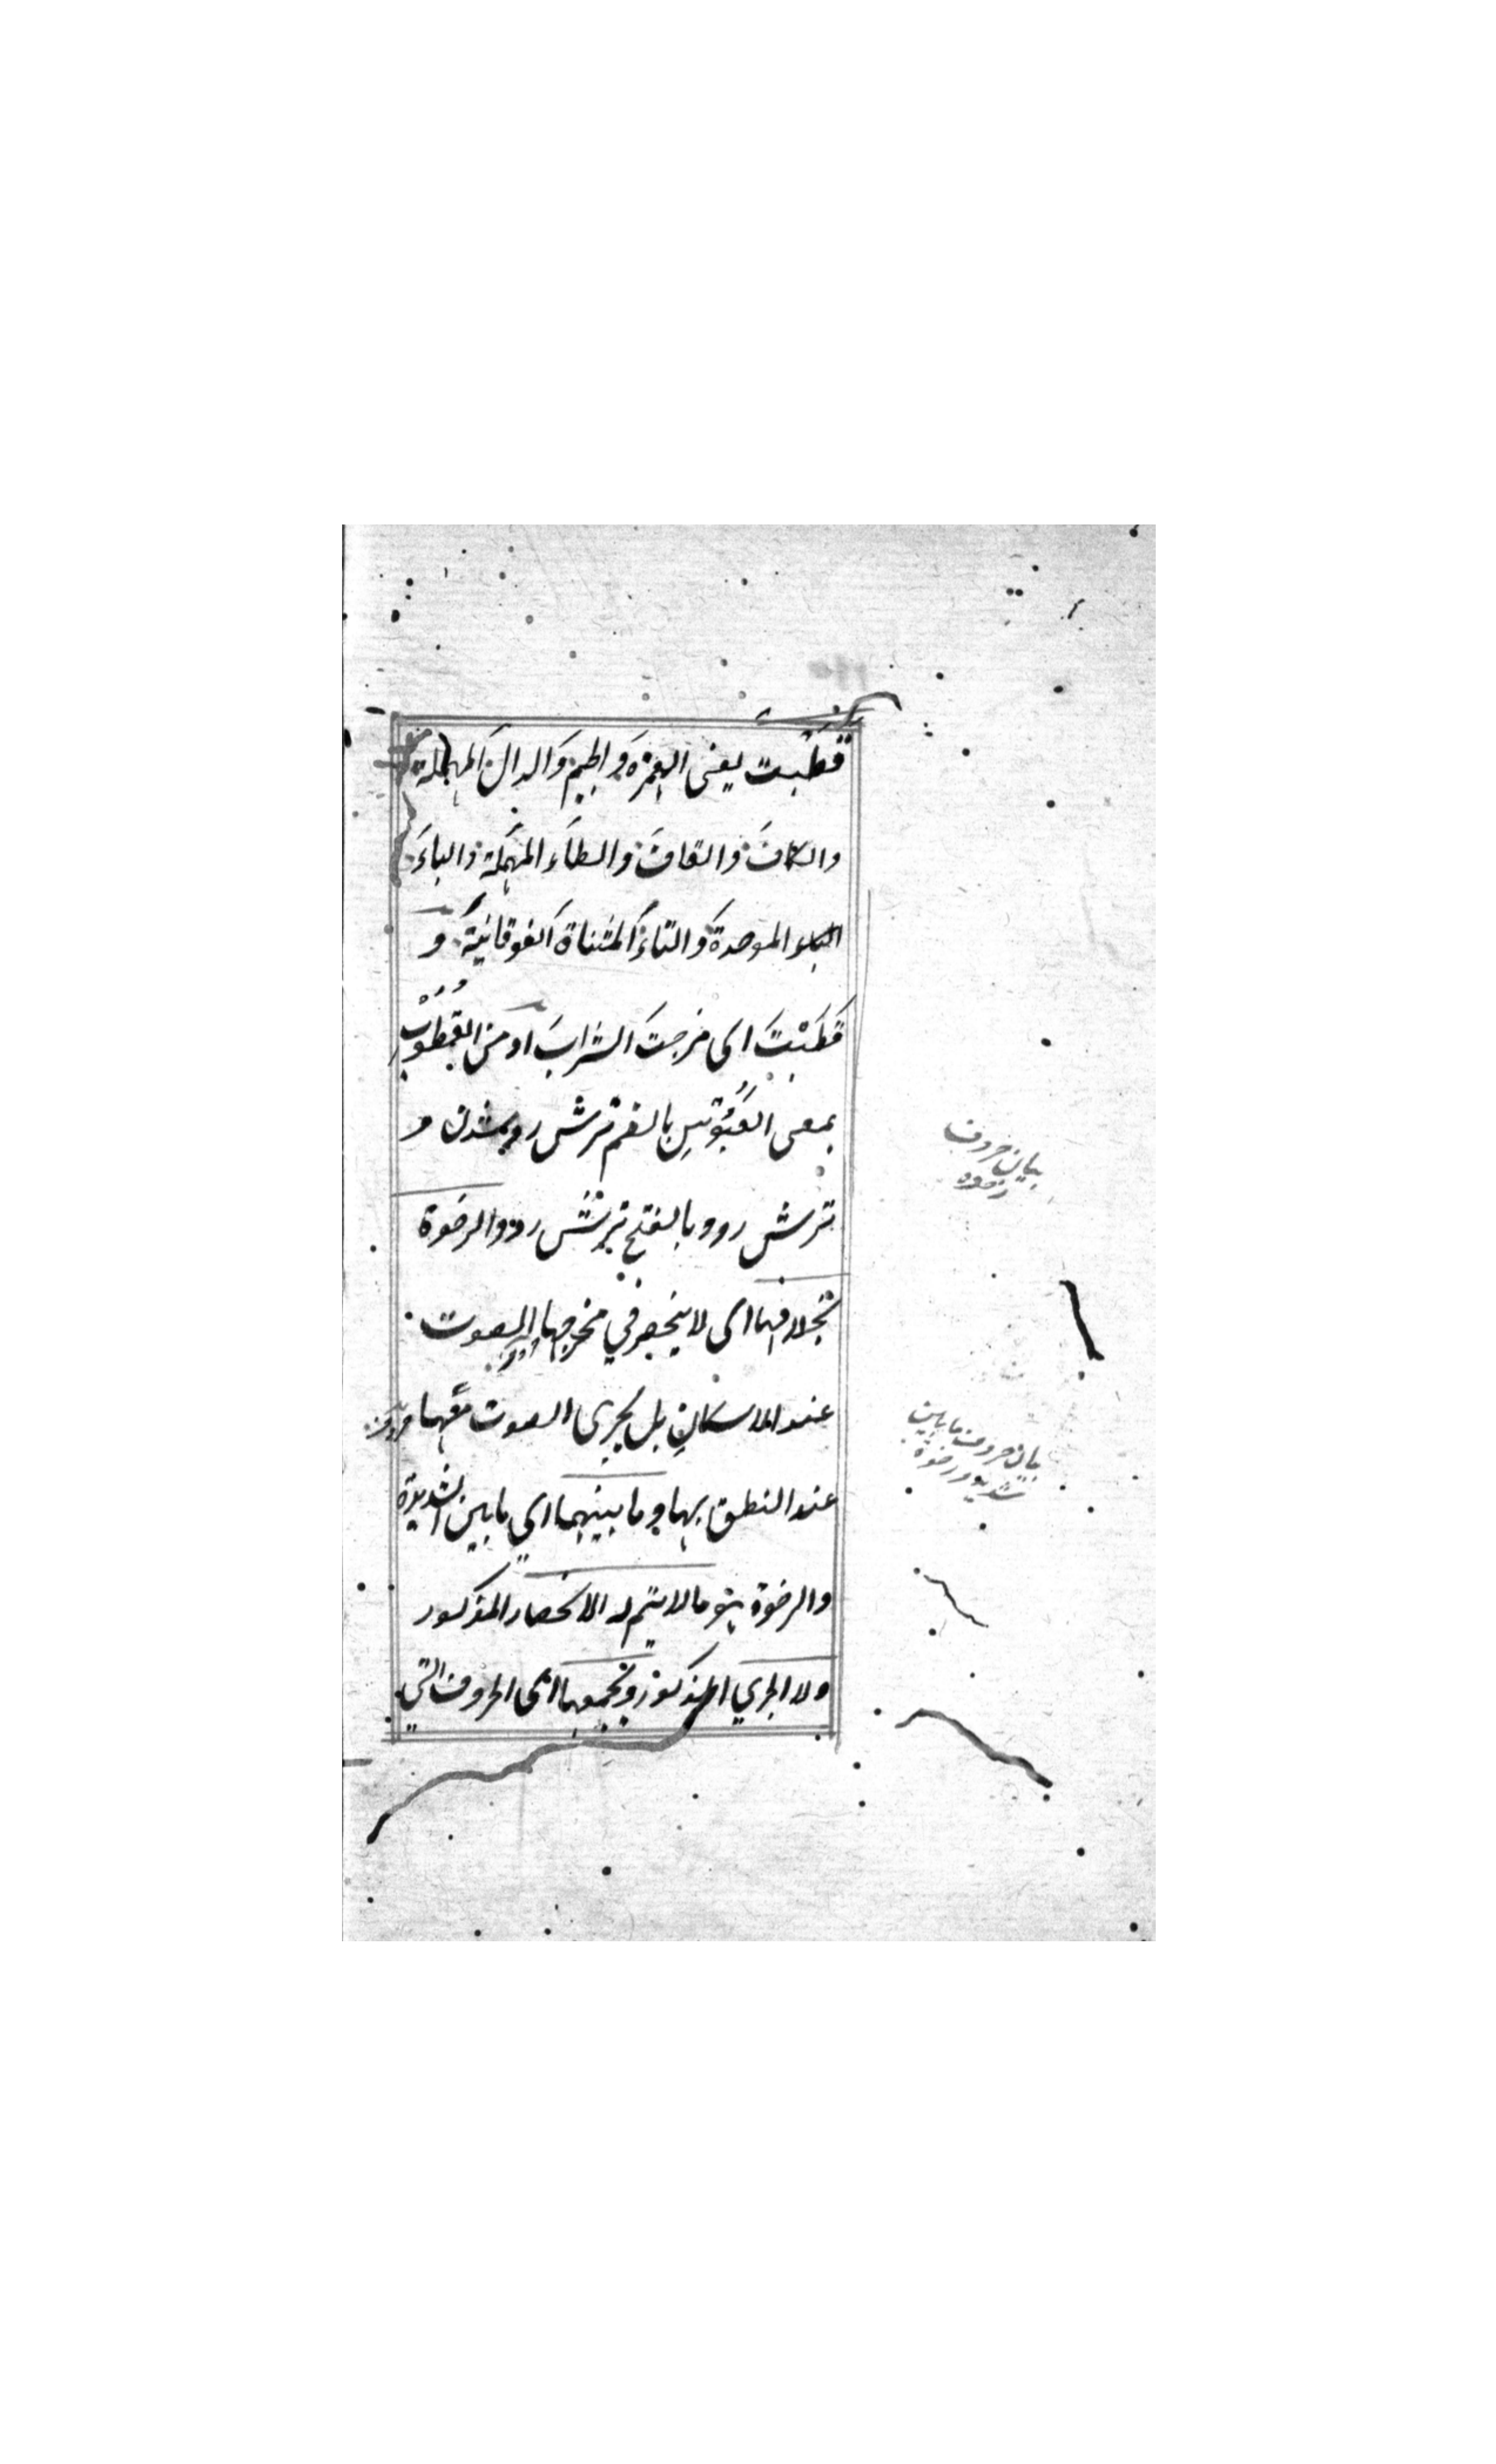 قطبت يعنى الهمزة وَالجيم وَالدالَ المهملة
والكافَ والقافَ والطاءَ المهملة والباءَ
الموحدة وَالتاءَ المثناة الفوقانيّة و
قَطَبْتَ اى مزجتَ الشرابَ او من القُطُوْبْ
بمعنى العُبُوْسِ بالضم ترش رو شدن و
ترش رو و بالفتح ترش رو والرخوة
بخلافها اى لا ينحصر في مخرجها الصوت
عند الاسكانِ بل يجرى الصوت معها
عند النطق بها وما بينهما اي ما بين الشديدة
والرخوة هو ما لا يتم له الانحصار المذكور
ولا الجري المذكور ويجمعها اى الحروف التي
بيان حروف
رخوه
بيان حروف ما بين
شديد و رخوة